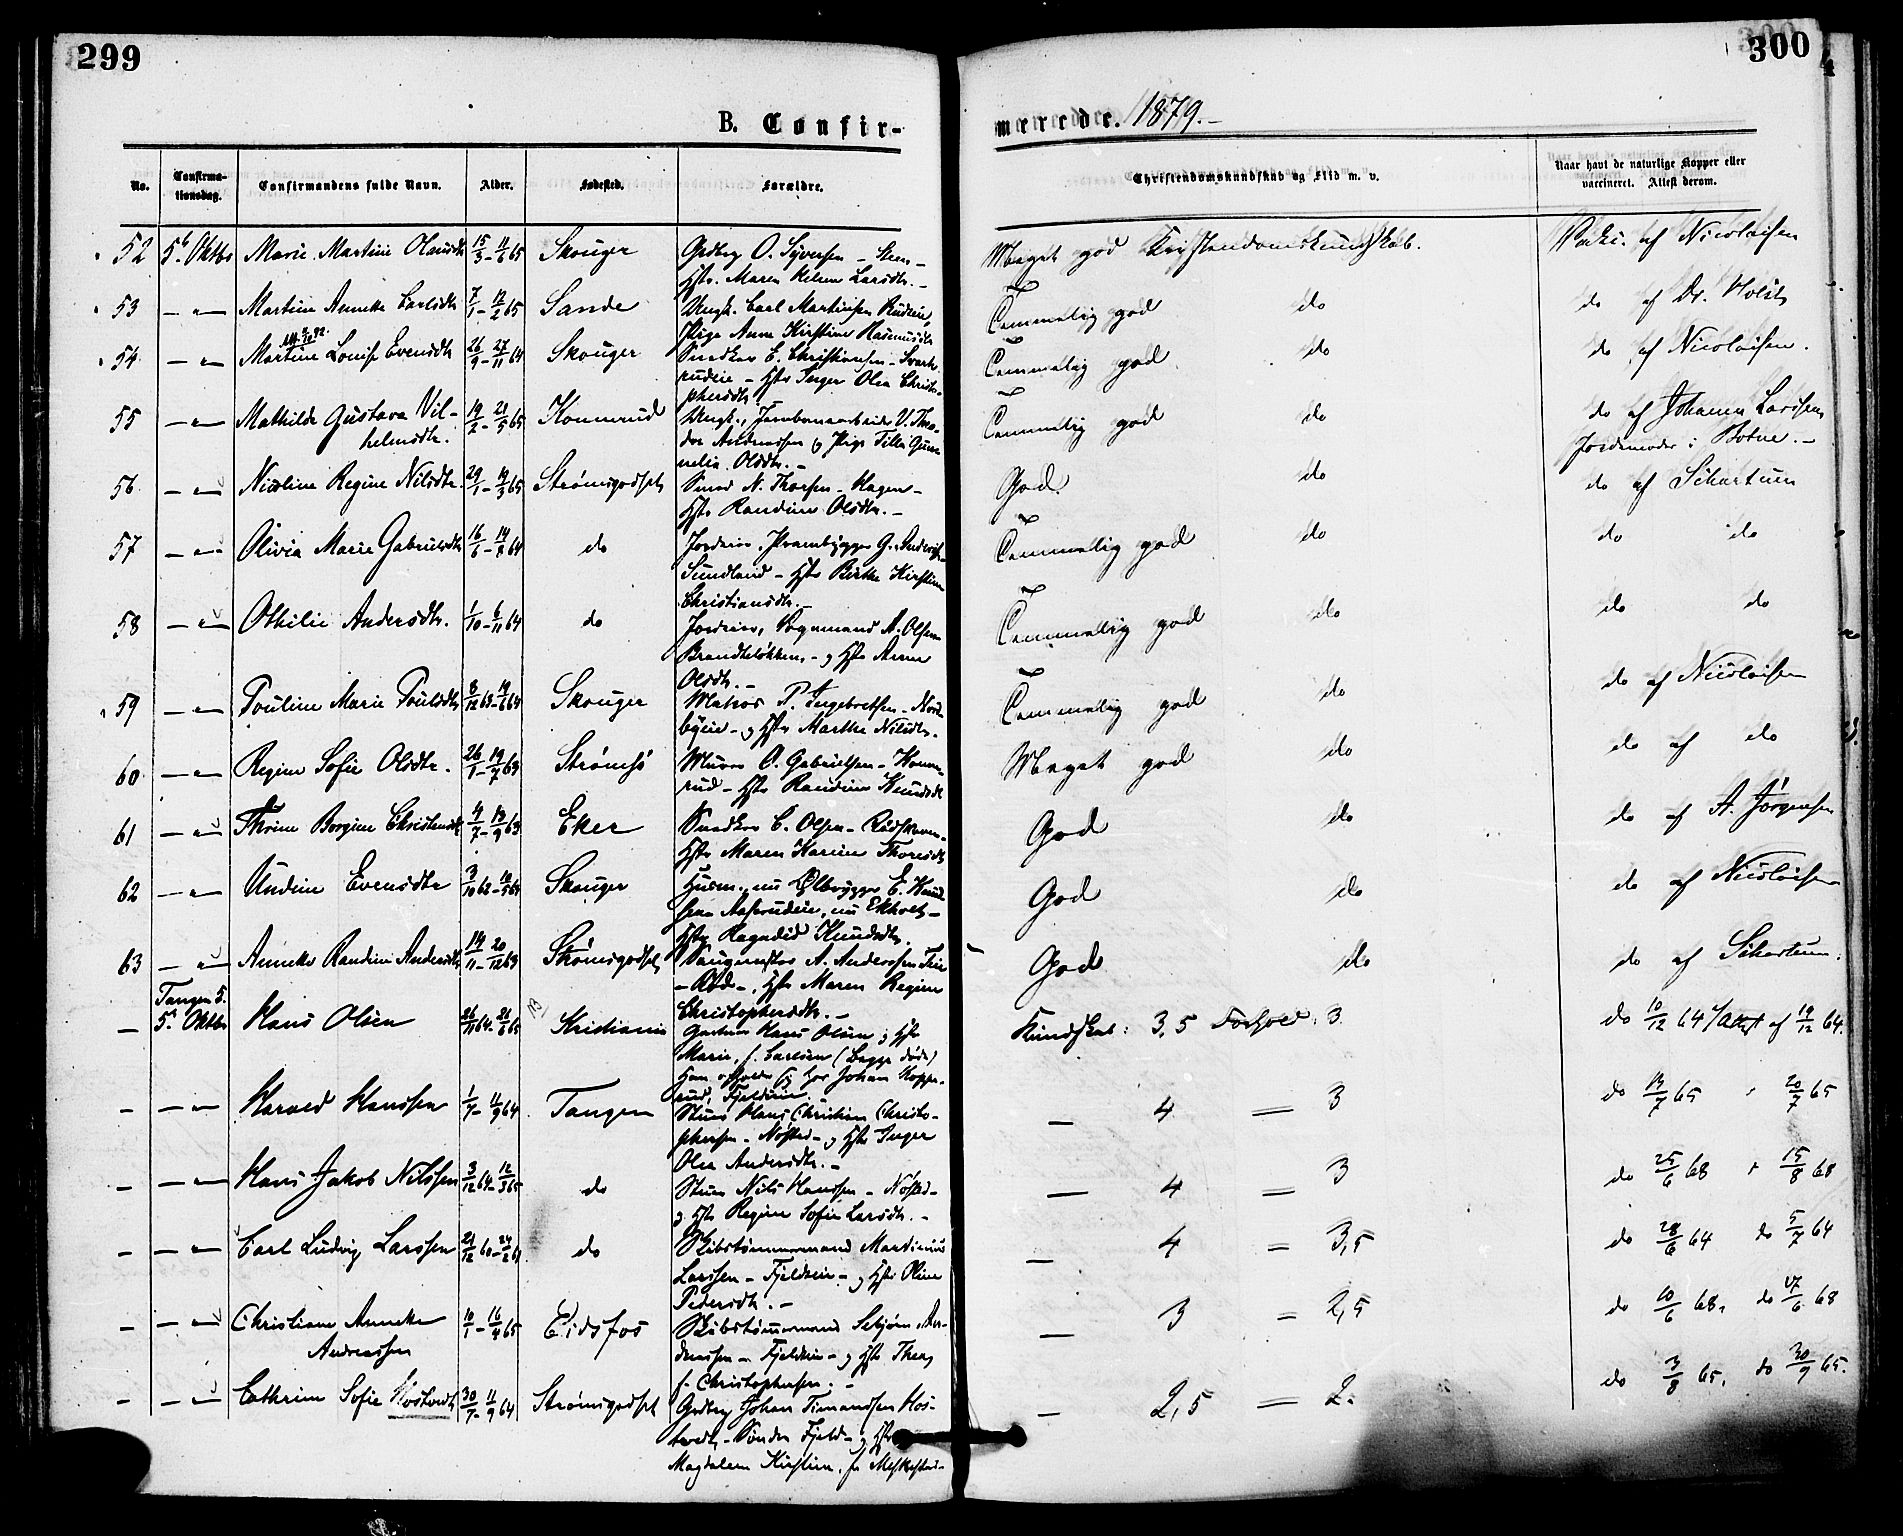 299
300
B. Confirmerede. 1879.-
No.
Confirmationsdag.
Confirmandens fulde Navn.
Alder.
Fødested.
Forældre.
Christendomskundskab og Flid m. v.
Naar havt de naturlige Kopper eller vaccineret. Attest derom.
52 5t Oktbr Marie Martine Olausdtr 15/3 - 11/6 65 Skouger
Grdbrg O. Syversen - Steen -
Hstr. Maren Helene Larsdtr. -
Meget god Kristendomskundskab. Vakc. af Nicolaisen
53 Martine Annette Carlsdtr 7/1 - 12/2 65 Sande
Ungk. Carl Martinsen Rudeie,
Pige Anne Kirstine Rasmusdtr
Temmelig god do do af Dr. Holst
54 Martine Louise Evensdtr 26/9 - 27/11 64 Skouger
Snedker E. Christiansen - Svart-
rudeie - Hstr Inger Olea Christo-
phersdtr.
Temmelig god do do af Nicolaisen.
55 Mathilde Gustava Vil-
helmsdtr. 19/2 - 21/5 65 Konnerud
Ungk., Jernbanearbeider V. Theo-
dor Andreassen og Pige Tilla Gun-
nelia Olsdtr. -
Temmelig god do do af Johanne Larssen
Jordemoder i Botne. -
56 Nicoline Regine Nilsdtr. 29/1 - 19/3 65 Strømsgodset
Smed N. Thorsen - Hagen -
Hstr Randine Olsdtr. -
God. do do af Schartum
57 Olivia Marie Gabrielsdtr 16/6 - 14/8 64 do
Jordeier, Prambygger G. Andersen
Sundland - Hstr Birthe Kirstine
Christiansdtr. -
Temmelig god do do do
58 Othilie Andersdtr. 1/10 - 6/11 64 do
Jordeier, Vognmand A. Olsen
Brandteløkken, - og Hstr Anne
Olsdtr. -
Temmelig god do do do
59 Pouline Marie Poulsdtr 8/12 63 - 19/6 64 Skouger
Matros P. Ingebretsen - Nord-
byeie - og Hstr Marthe Nilsdtr.
Temmelig god do do af Nicolaisen
60 Regine Sofie Olsdtr. 26/1 - 19/7 63 Strømsø
Murer O. Gabrielsen - Konne-
rud - Hstr Randine Knudsdtr
Meget god do do af do
61 Thrine Borgine Christensdtr 4/7 - 13/9 63 Eker
Snedker C. Olsen -
Hstr Maren Karine Thoresdtr
God do do af A. Jørgensen
62 Undine Evensdtr 3/10 62 - 10/5 63 Skouger
Husm., nu Ølbrygger E. Knud-
sen Aaserudeie, nu Ekholt -
Hstr Ragndid Knudsdtr.
God do do af Nicolaisen
63 Annette Randine Andersdtr 14/11 - 20/12 63 Strømsgodset
Saugmester A. Anderssen
- Hstr Maren Regine
Christophersdtr. -
God do do af Schartum.
Tangen 5.
5t Oktbr Hans Olsen 26/11 64 - 21/6 65 Kristiania
Gartner Hans Olsen og Hstr
Marie, f. Carlsen (Begge døde)
Han opholder sig hos Johan Koppe-
rud, Fjeldeie.
Kundskab: 3,5 Forhold: 3. do 10/12 64 / Attest af 19/12 64.
Harald Hanssen 1/7 - 11/9 64 Tangen
Stuer Hans Christian Christo-
phersen - Nøsted - og Hstr Inger
Olea Andersdtr. -
4 3 do 13/7 65 20/7 65
Hans Jakob Nilssen 3/12 64 - 12/3 65 do
Stuer Nils Hanssen - Nøsted -
og Hstr Regine Sofie Larsdtr. -
4 3 do 25/6 68 15/8 68
Carl Ludvig Larssen 21/12 60 - 24/2 61 do
Skibstømmermand Martinius
Larssen - Fjeldeie - og Hstr Oline
Pedersdtr. -
4 3,5 do 28/6 64 do 5/7 64
Christiane Annette
Andreassen 10/1 - 16/4 65 Eidsfos
Skibstømmermand An-
dreassen - Fjeldeie - og Hstr Thea,
f. Christophersen. -
3 2,5 do 10/6 68, do 17/6 68
Cathrine Sofie Hostvedt 30/7 - 11/9 64 Strømsgodset
Grdbrg Johan Timandsen Hos-
tvedt - Søndre Fjeld - og Hstr
Magdalene Kirstine, f.
2,5 2. do 3/8 65, do 30/9 65.